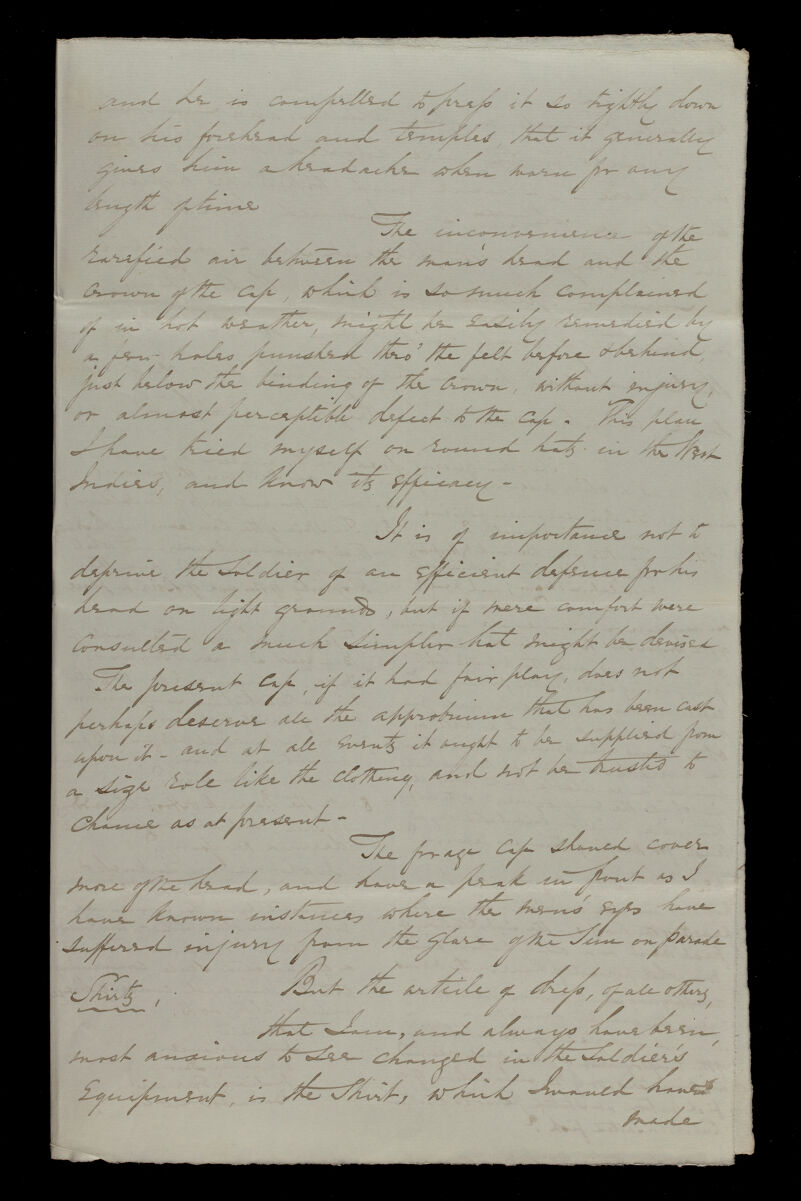 and he is compelled to press it so tightly down
on his forehead and temples, that it generally
gives him a headache when worn for any
length of time
The inconvenience of the
rarefied air between the man's head and the
crown of the cap, which is so much complained
of in hot weather, might be easily remedied by
a few holes punshed thro' the felt before & behind,
just below the binding of the crown, without injury,
or almost perceptible defect to the cap. This plan
I have tried myself on round hats in the West
Indies, and know its efficacy -
It is of importance not to
deprive the Soldier of an efficient defence for his
head on light grounds, but if mere comfort were
consulted a much simpler hat might be devised
The present cap, if it had fair play, does not
perhaps deserve all the approbrium that has been cast
upon it - and at all events it ought to be supplied from
a size role like the clothing, and not be trusted to
chance as at present -
The forage cap should cover
more of the head, and have a peak in front as I
have known instances where the men's eyes have
suffered injury from the glare of the Sun on parade
Shirts, But the article of dress, of all others,
that I am, and always have been,
most anxious to see changed in the Soldier's
Equipment, is the Shirt, which I would have
made